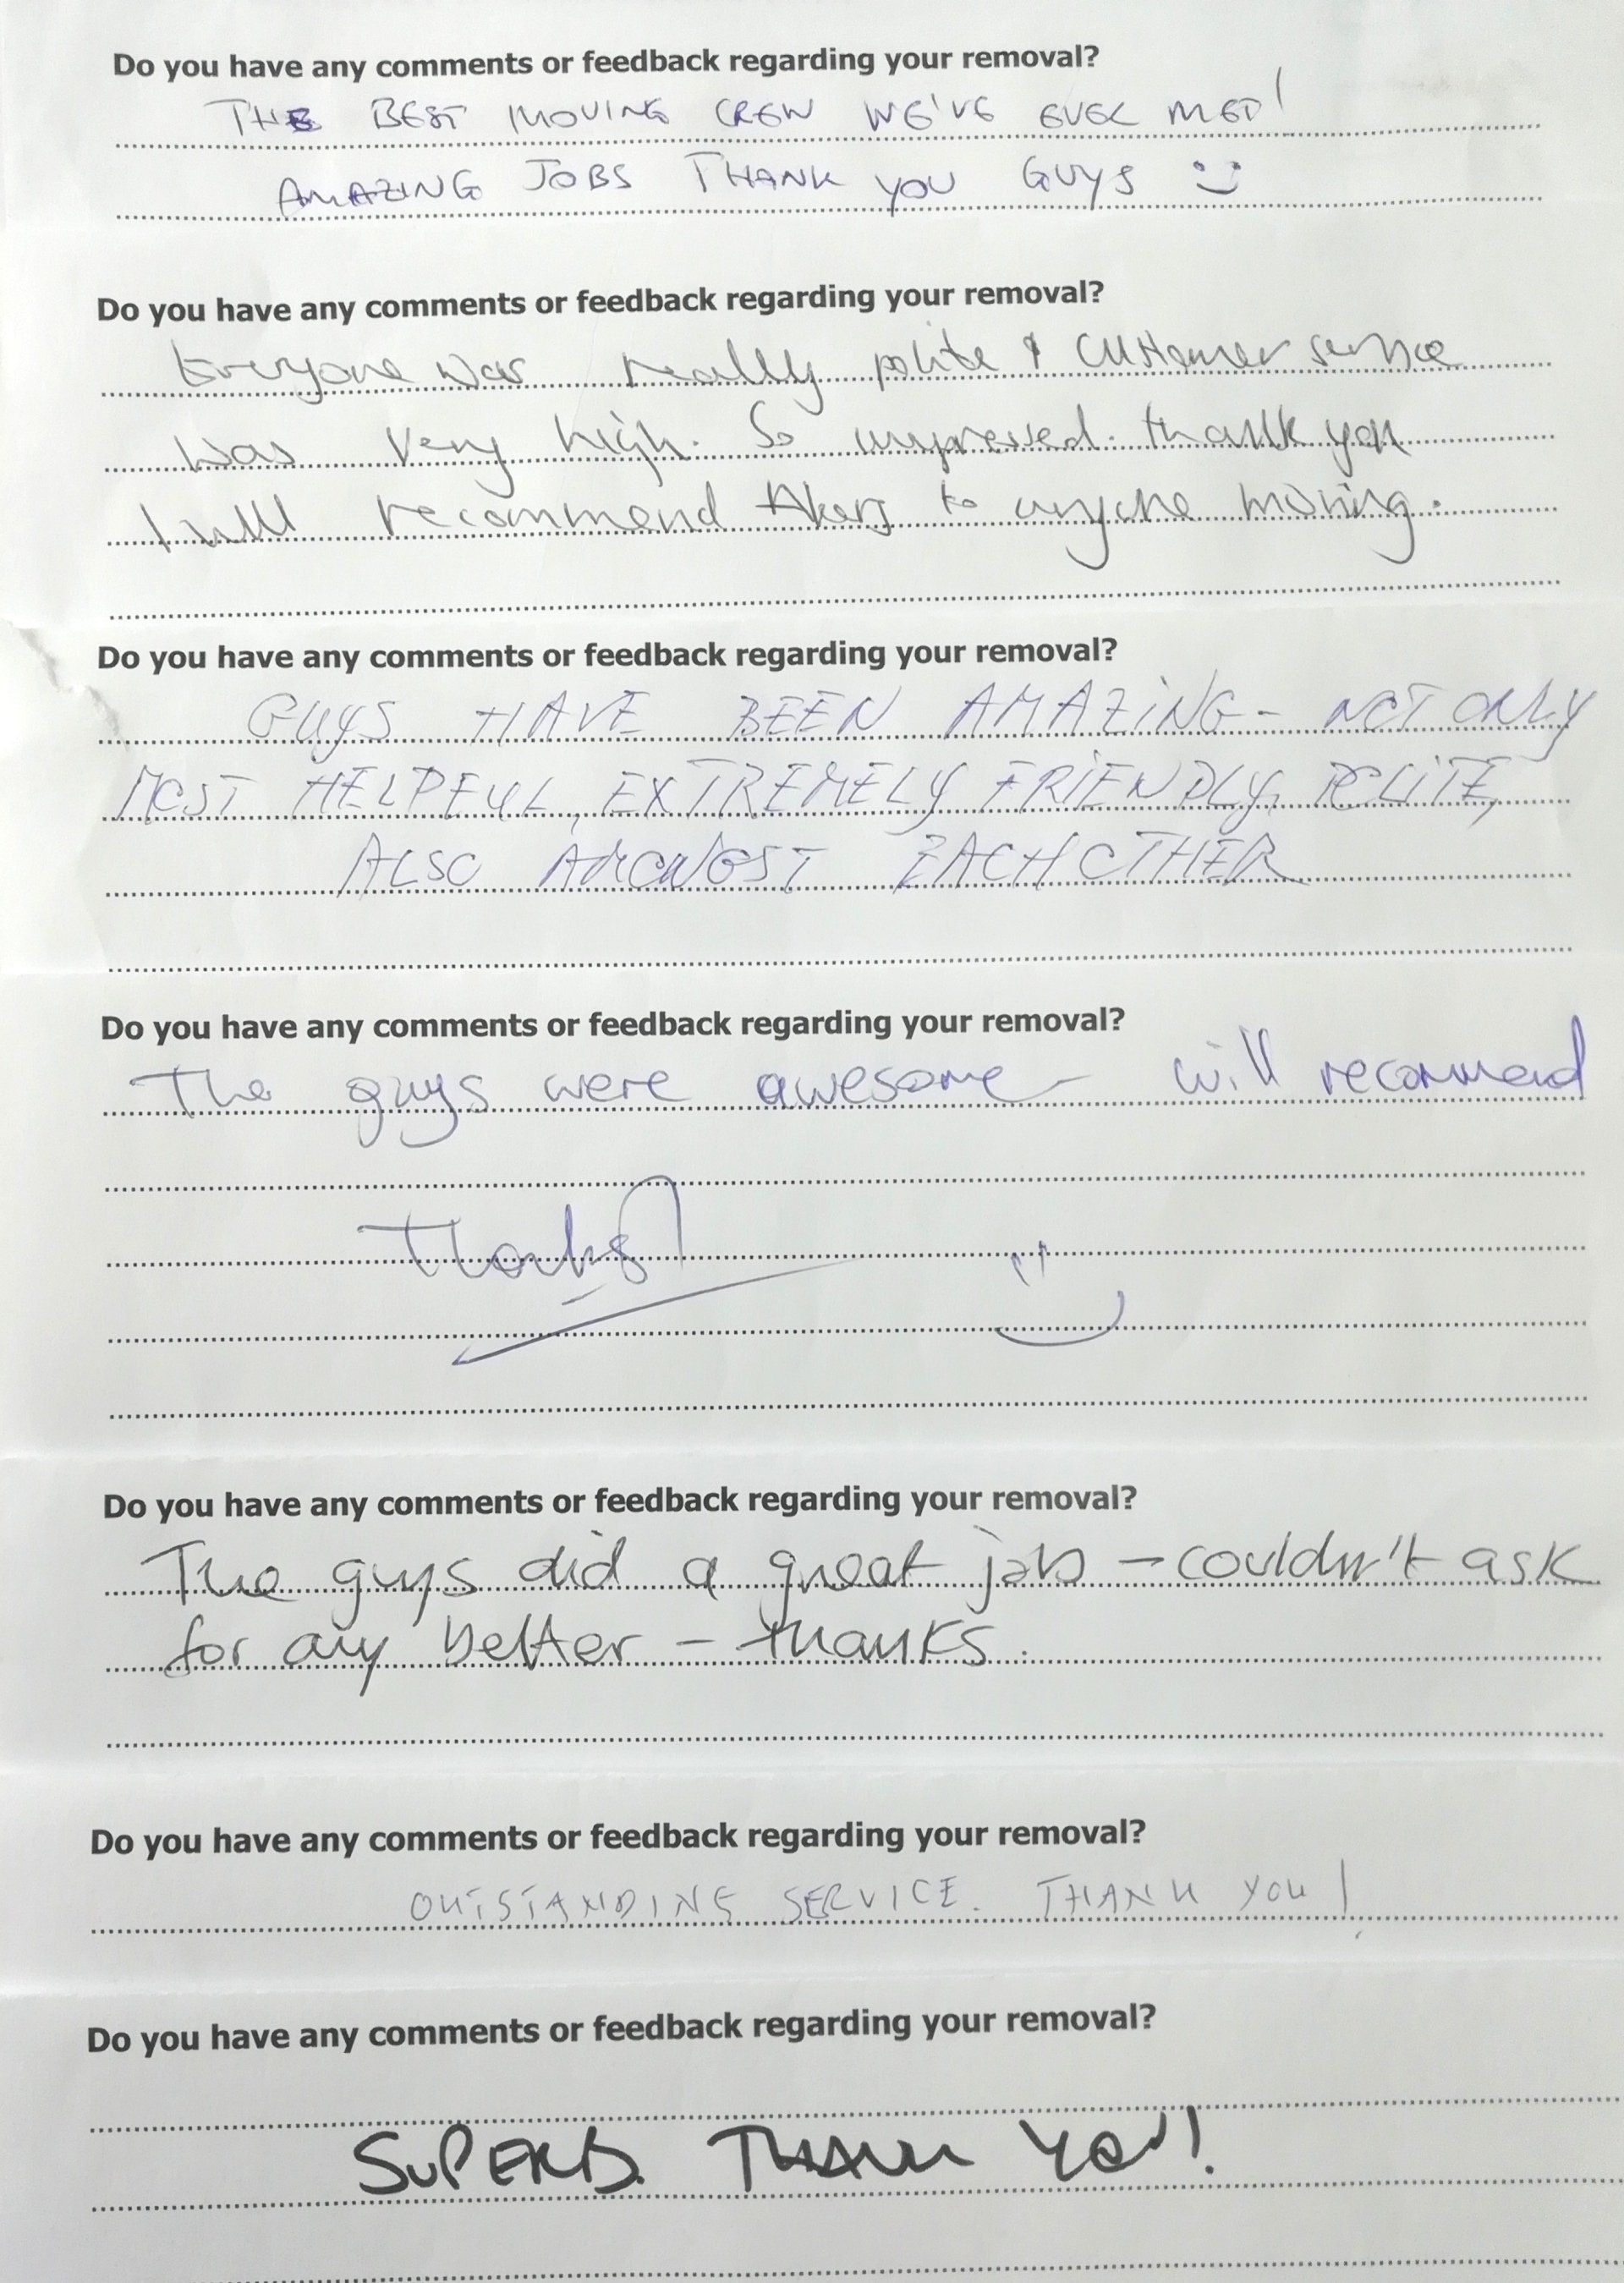 Do you have any comments or feedback regarding your removal?
THE BEST MOVING CREW WE'VE EVER MET!
AMAZING JOBS THANK YOU GUYS
Do you have any comments or feedback regarding your removal?
Everyone was really polite & customer service
was very high. So impressed. thank you
I will recommend to anyone moving.
Do you have any comments or feedback regarding your removal?
GUYS HAVE BEEN AMAZING - NOT ONLY
MOST HELPFUL, EXTREMELY FRIENDLY, POLITE,
ALSO AMONGST EACHOTHER
Do you have any comments or feedback regarding your removal?
The guys were awesome - will recommend
Thanks
Do you have any comments or feedback regarding your removal?
The guys did a great job - couldn't ask
for any better - thanks.
Do you have any comments or feedback regarding your removal?
OUTSTANDING SERVICE. THANK YOU!
Do you have any comments or feedback regarding your removal?
SUPERB. THANK YOU!